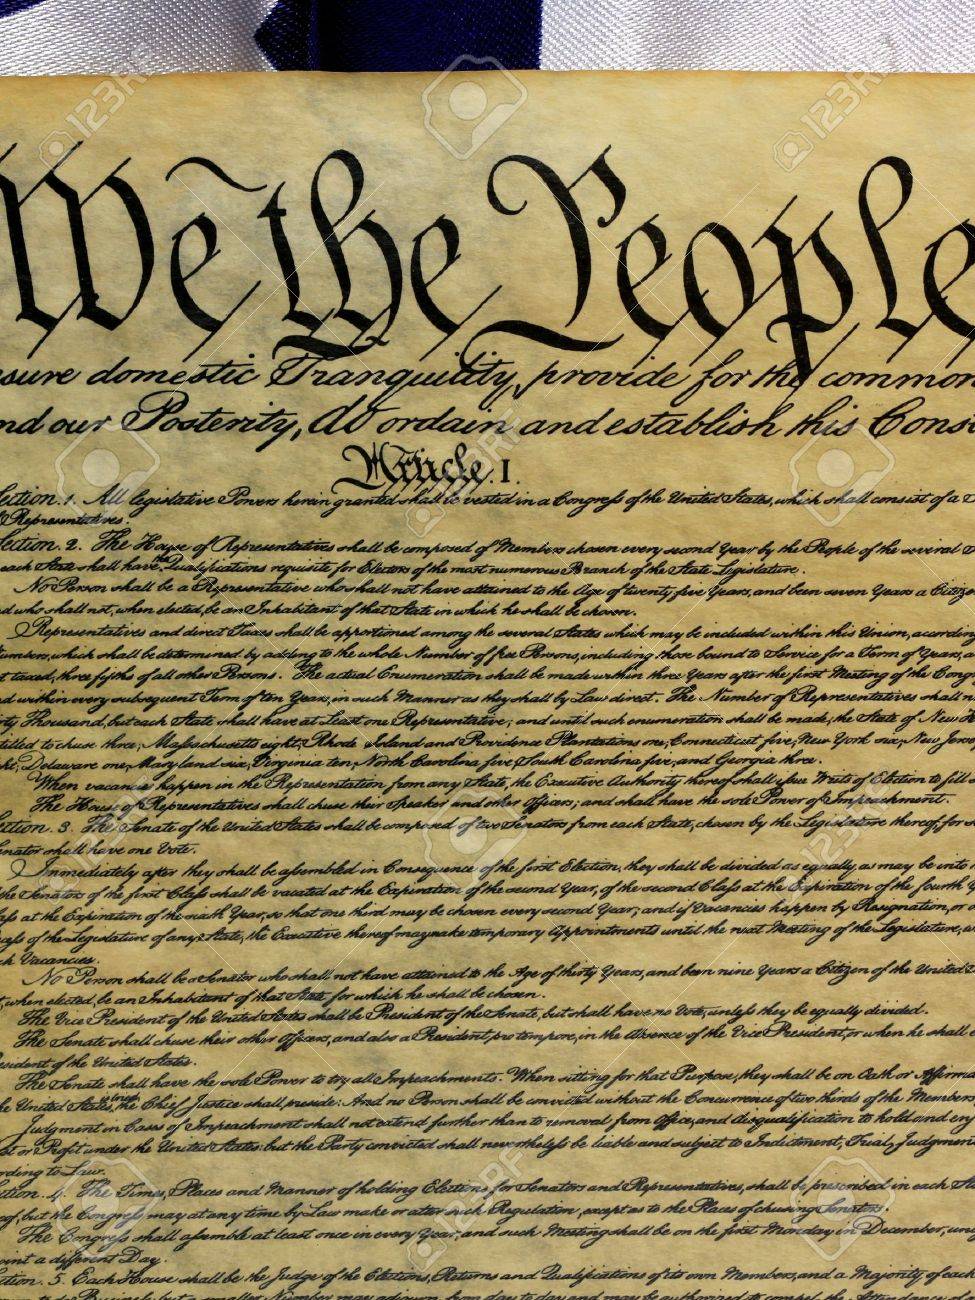 We the People
sure domestic Tranquility, provide for the common
nd our Posterity, do ordain and establish this Cons
Article. I.
Section. 1. All legislative Powers herein granted shall be vested in a Congress of the United States, which shall consist of a
Representatives.
Section. 2. The House of Representatives shall be composed of Members chosen every second Year by the People of the several
each State shall have the Qualifications requisite for Electors of the most numerous Branch of the State Legislature.
No Person shall be a Representative who shall not have attained to the Age of twenty five Years, and been seven Years a Citizen
d who shall not, when elected, be an Inhabitant of that State in which he shall be chosen.
Representatives and direct Taxes shall be apportioned among the several States which may be included within this Union, according
Numbers, which shall be determined by adding to the whole Number of free Persons, including those bound to Service for a Term of Years, a
t taxed, three fifths of all other Persons. The actual Enumeration shall be made within three Years after the first Meeting of the Cong
d within every subsequent Term of ten Years, in such Manner as they shall by Law direct. The Number of Representatives shall n
rty Thousand, but each State shall have at Least one Representative; and until such enumeration shall be made, the State of New H
titled to chuse three, Massachusetts eight, Rhode Island and Providence Plantations one, Connecticut five, New York six, New Jersey
ht, Delaware one, Maryland six, Virginia ten, North Carolina five, South Carolina five, and Georgia three.
When vacancies happen in the Representation from any State, the Executive Authority thereof shall issue Writs of Election to fill s
The House of Representatives shall chuse their Speaker and other Officers; and shall have the sole Power of Impeachment.
ection. 3. The Senate of the United States shall be composed of two Senators from each State, chosen by the Legislature thereof, for s
enator shall have one Vote.
Immediately after they shall be assembled in Consequence of the first Election, they shall be divided as equally as may be into
the Senators of the first Class shall be vacated at the Expiration of the second Year, of the second Class at the Expiration of the fourth Y
lass at the Expiration of the sixth Year, so that one third may be chosen every second Year; and if Vacancies happen by Resignation, or o
cess of the Legislature of any State, the Executive thereof may make temporary Appointments until the next Meeting of the Legislature, w
ch Vacancies.
No Person shall be a Senator who shall not have attained to the Age of thirty Years, and been nine Years a Citizen of the United
, when elected, be an Inhabitant of that State for which he shall be chosen.
The Vice President of the United States shall be President of the Senate, but shall have no Vote, unless they be equally divided.
The Senate shall chuse their other Officers, and also a President pro tempore, in the Absence of the Vice President, or when he shall
resident of the United States.
The Senate shall have the sole Power to try all Impeachments. When sitting for that Purpose, they shall be on Oath or Affirma
he United States is tried, the Chief Justice shall preside: And no Person shall be convicted without the Concurrence of two thirds of the Members
Judgment in Cases of Impeachment shall not extend further than to removal from Office, and disqualification to hold and enj
st or Profit under the United States: but the Party convicted shall nevertheless be liable and subject to Indictment, Trial, Judgment
ording to Law.
ection. 4. The Times, Places and Manner of holding Elections for Senators and Representatives, shall be prescribed in each Sta
eof; but the Congress may at any time by Law make or alter such Regulation, except as to the Places of chusing Senators.
The Congress shall assemble at least once in every Year, and such Meeting shall be on the first Monday in December, unl
oint a different Day.
ection. 5. Each House shall be the Judge of the Elections, Returns and Qualifications of its own Members, and a Majority of each
to do Business; but a smaller Number may adjourn from day to day, and may be authorized to compel the Attendance of
123RF